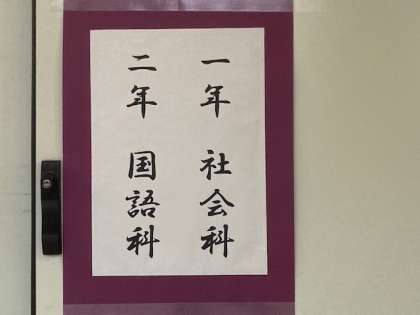 一年 社会科
二年 国語科